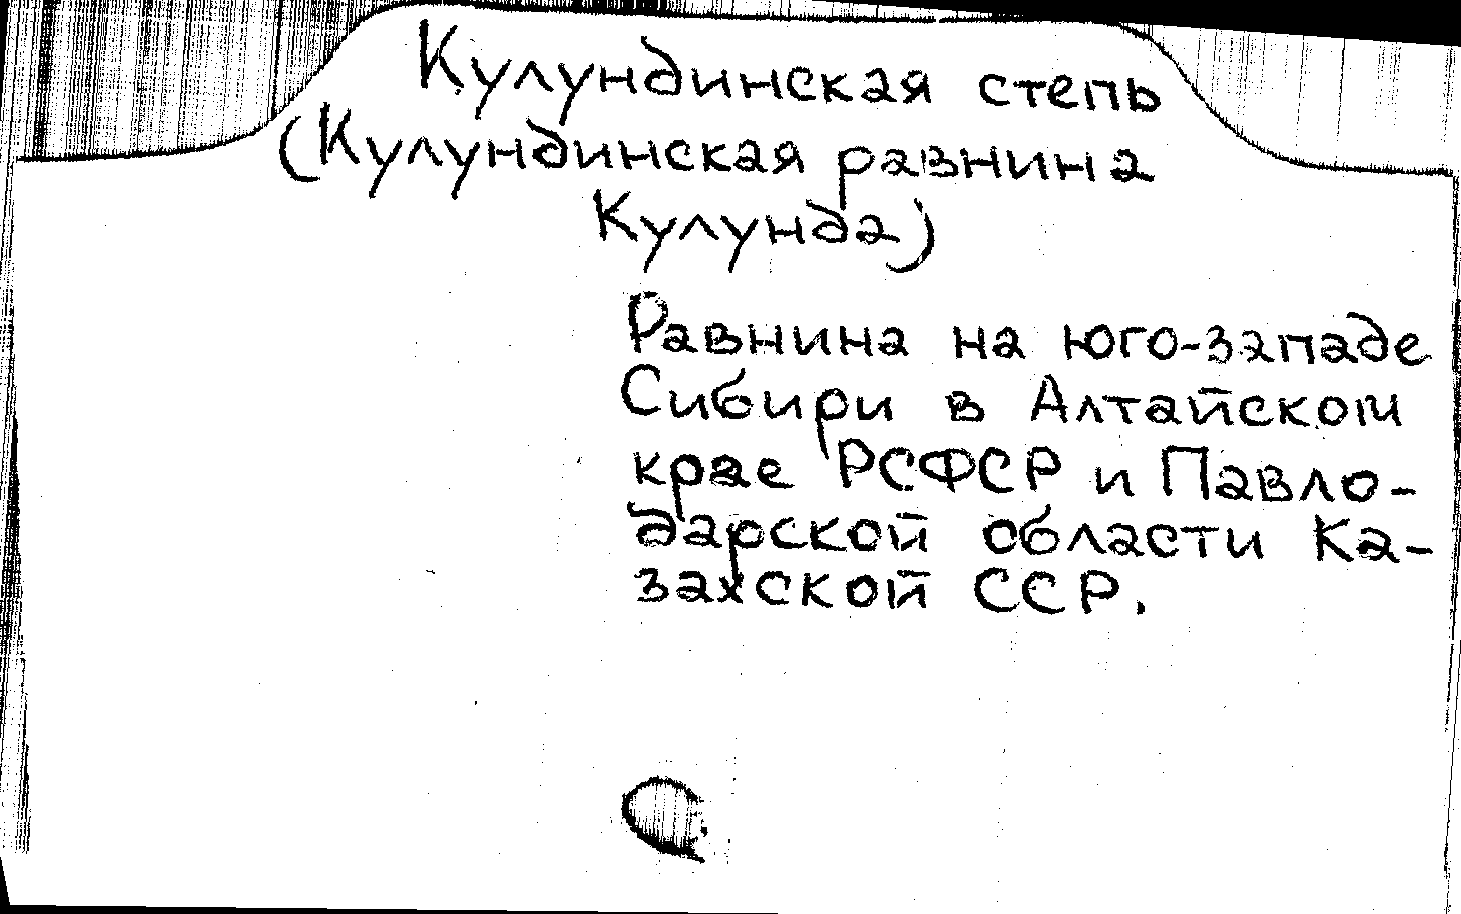 Кулундинская степь
(Кулундинская равнина
Кулунда)
Равнина на юго-западе
Сибири в Алтайском
крае РСФСР и Павло-
дарской области Ка-
захской ССР.